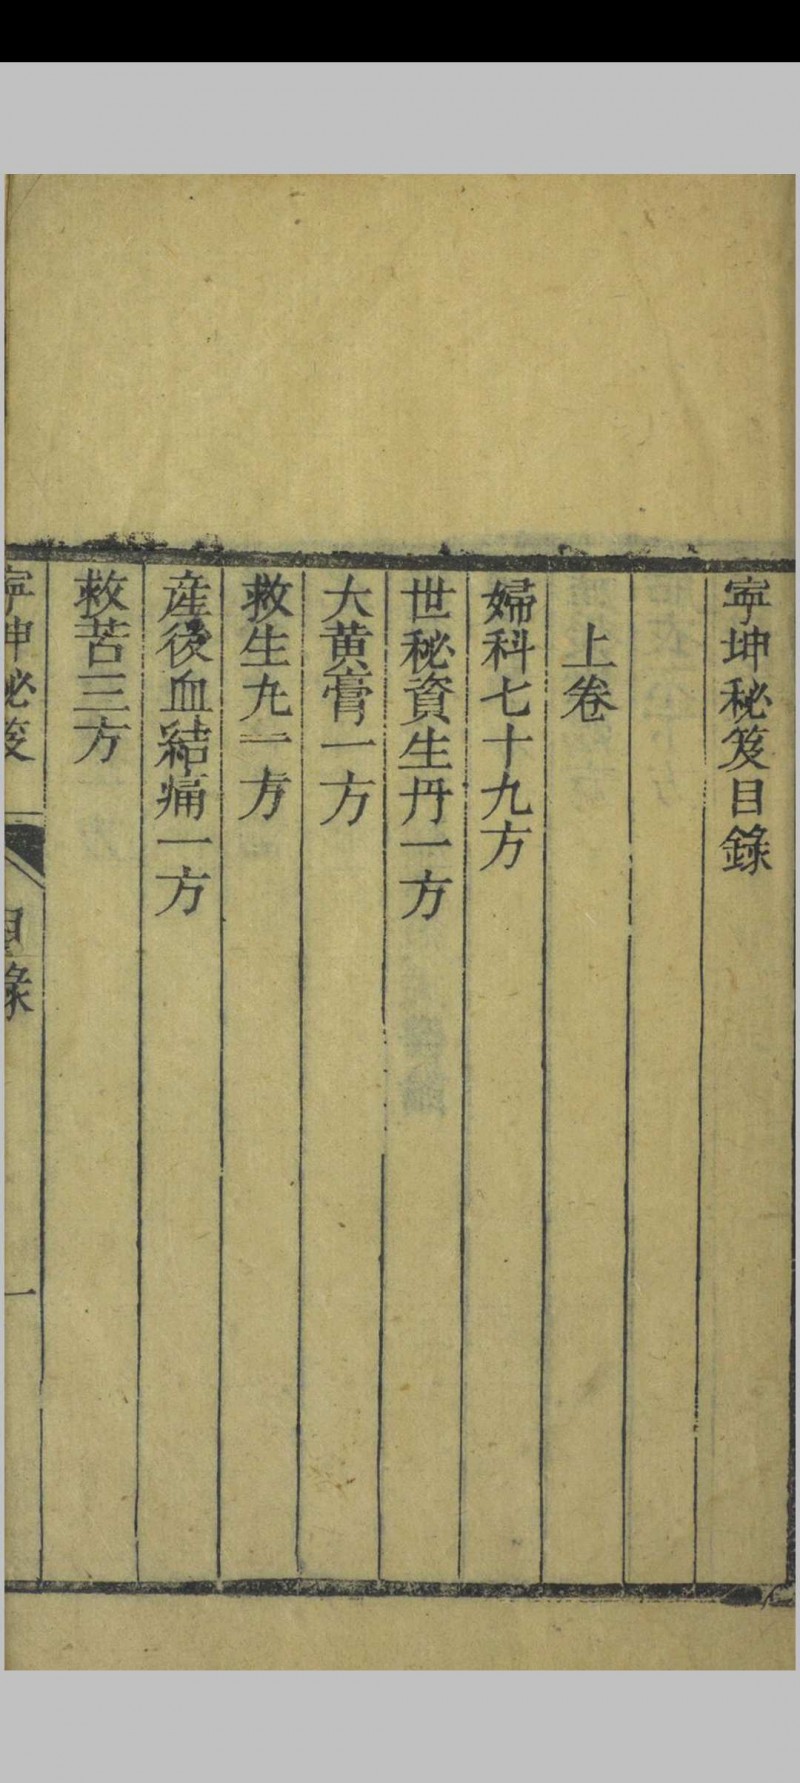 寧坤秘笈目錄
上卷
婦科七十九方
世秘資生丹一方
大黃膏一方
救生丸一方
產後血結痛一方
救苦三方
寧坤秘笈
目錄
一